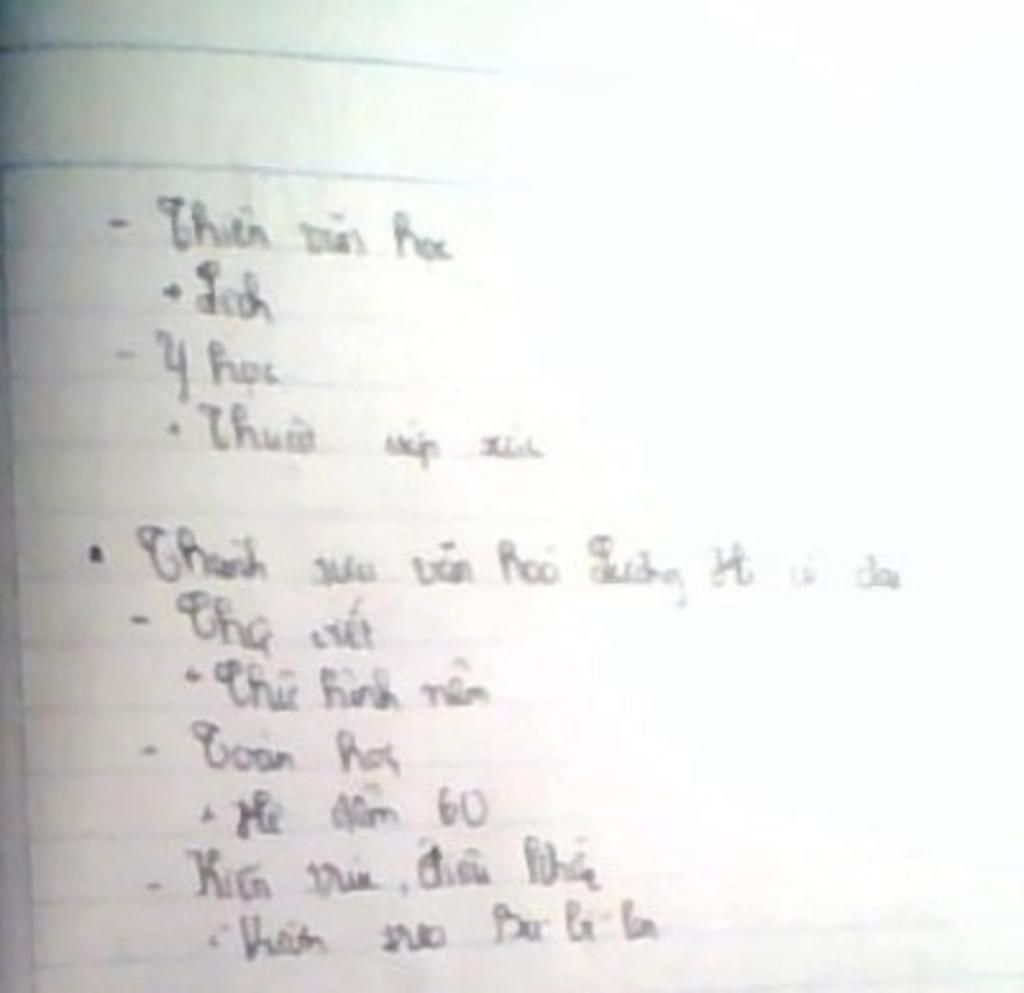 - Thiên văn học
+ Lịch
- Y học
+ Thuật ướp xác
• Thành tựu văn hoá Lưỡng Hà cổ đại
- Chữ viết
+ Chữ hình nêm
- Toán học
+ Hệ đếm 60
- Kiến trúc, điêu khắc
+ Vườn treo Ba-bi-lon